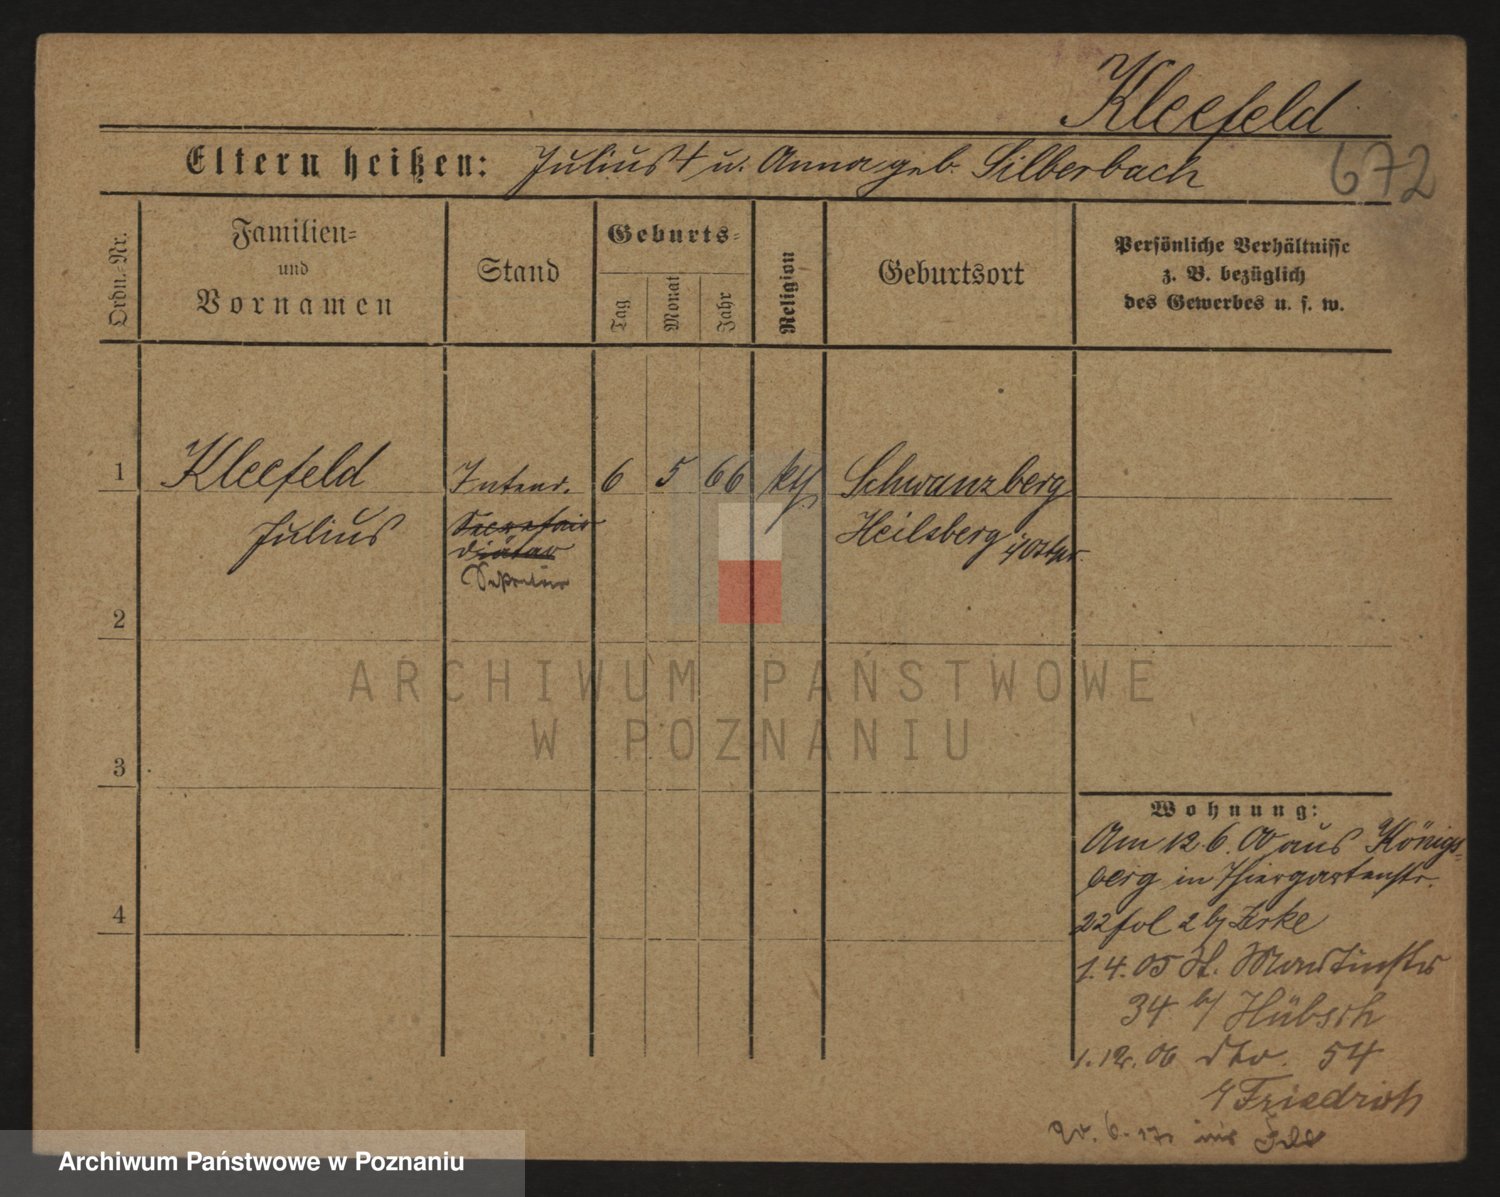 Kleefeld
672
Eltern heißen: Julius † u. Anna geb. Silberbach
Ordn.=Nr.
Familien=
und
Vornamen
Stand
Geburts=
Tag
Monat
Jahr
Religion
Geburtsort
Persönliche Verhältnisse
z. B. bezüglich
des Gewerbes u. s. w.
1
Kleefeld
Julius
Intend.
Secretair
Diätar
Sekretär
6 5 66
Schwanzberg
Heilsberg i/Ostpr.
2
3
4
Wohnung:
Am 12.6.00 aus Königs-
berg in Thiergartenstr.
22 fol 2 b/ Zirke
1.4.05 St. Martinstr
34 b/ Hübsch
1.12.06 dto. 54
b/ Friedrich
ARCHIWUM PAŃSTWOWE
W POZNANIU
Archiwum Państwowe w Poznaniu